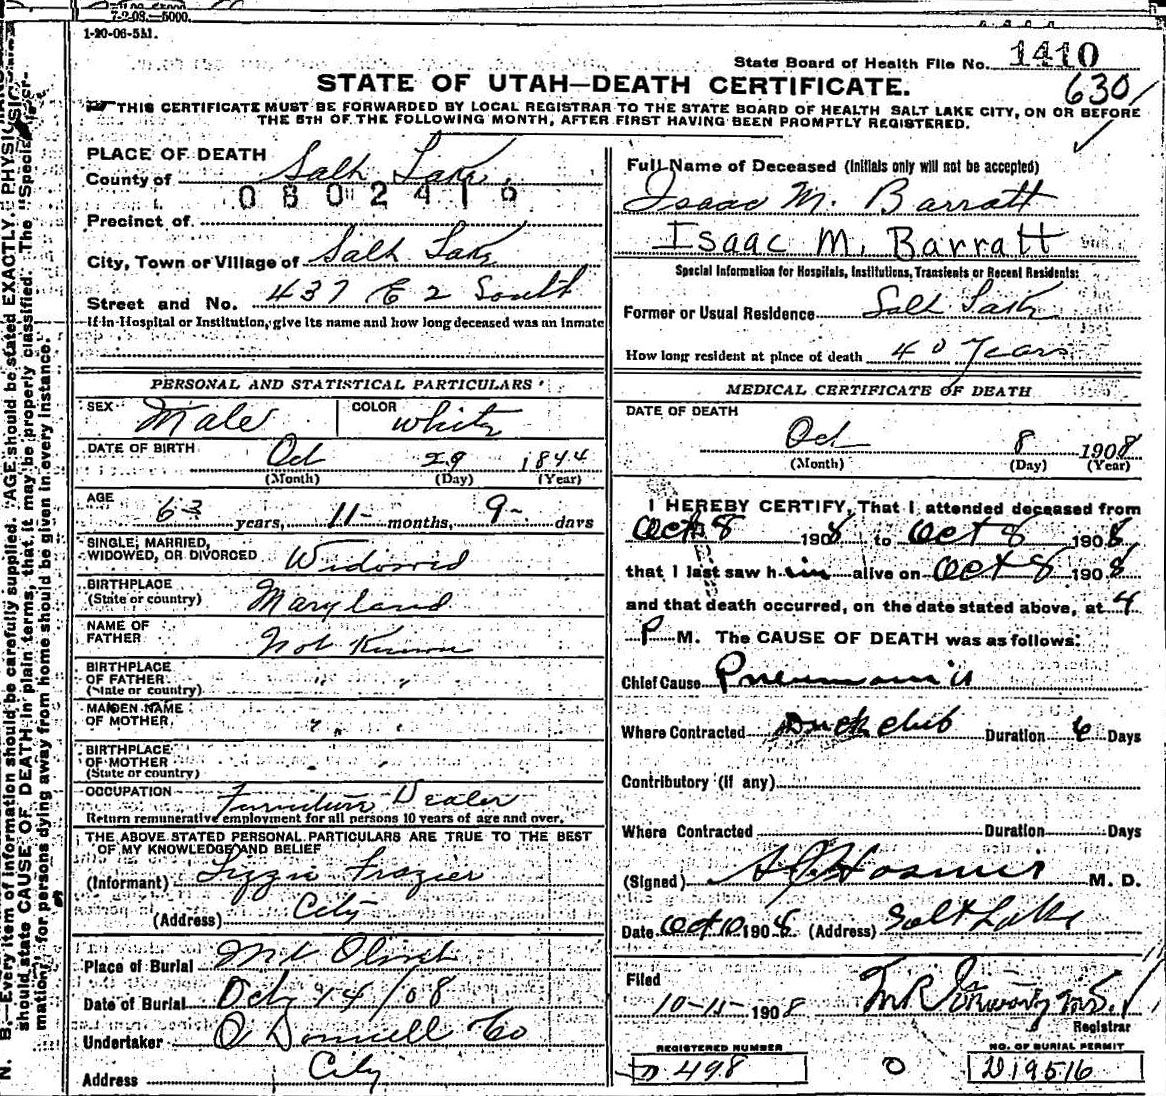 7-2-08.—5000.
1-20-06-5M.
State Board of Health File No. 1410
630
STATE OF UTAH—DEATH CERTIFICATE.
THIS CERTIFICATE MUST BE FORWARDED BY LOCAL REGISTRAR TO THE STATE BOARD OF HEALTH SALT LAKE CITY, ON OR BEFORE
THE 5TH OF THE FOLLOWING MONTH, AFTER FIRST HAVING BEEN PROMPTLY REGISTERED.
PLACE OF DEATH
County of Salt Lake.
0802419
Precinct of
City, Town or Village of Salt Lake
Street and No. 437 E 2 South
If in Hospital or Institution, give its name and how long deceased was an inmate
PERSONAL AND STATISTICAL PARTICULARS
SEX Male COLOR White
DATE OF BIRTH Oct 29 1844
(Month) (Day) (Year)
AGE 63 years, 11 months, 9 days
SINGLE, MARRIED,
WIDOWED, OR DIVORCED Widowed
BIRTHPLACE
(State or country) Maryland
NAME OF
FATHER Not Known
BIRTHPLACE
OF FATHER " "
(State or country)
MAIDEN NAME
OF MOTHER " "
BIRTHPLACE
OF MOTHER " "
(State or country)
OCCUPATION Furniture Dealer
Return remunerative employment for all persons 10 years of age and over.
THE ABOVE STATED PERSONAL PARTICULARS ARE TRUE TO THE BEST
OF MY KNOWLEDGE AND BELIEF
(Informant) Lizzie Frazier
(Address) City
Place of Burial Mt Olivet
Date of Burial Oct 14/08
Undertaker O Donnell & Co
Address City
Full Name of Deceased (Initials only will not be accepted)
Isaac M. Barratt
Isaac M. Barratt
Special Information for Hospitals, Institutions, Transients or Recent Residents:
Former or Usual Residence Salt Lake
How long resident at place of death 40 Years
MEDICAL CERTIFICATE OF DEATH
DATE OF DEATH
Oct 8 1908
(Month) (Day) (Year)
I HEREBY CERTIFY, That I attended deceased from
Oct 8 1908 to Oct 8 1908
that I last saw him alive on Oct 8 1908
and that death occurred, on the date stated above, at 4
P M. The CAUSE OF DEATH was as follows:
Chief Cause Pneumonia
Where Contracted Duck club Duration 6 Days
Contributory (if any)
Where Contracted Duration Days
(Signed) M. D.
Date Oct 10 1908 (Address) Salt Lake
Filed
10-15-1908
Registrar
REGISTERED NUMBER
D 498
0
NO. OF BURIAL PERMIT
D19516
N. B.—Every item of information should be carefully supplied. AGE should be stated EXACTLY. PHYSICIANS
should state CAUSE OF DEATH in plain terms, that it may be properly classified. The "Special Infor-
mation" for persons dying away from home should be given in every instance.